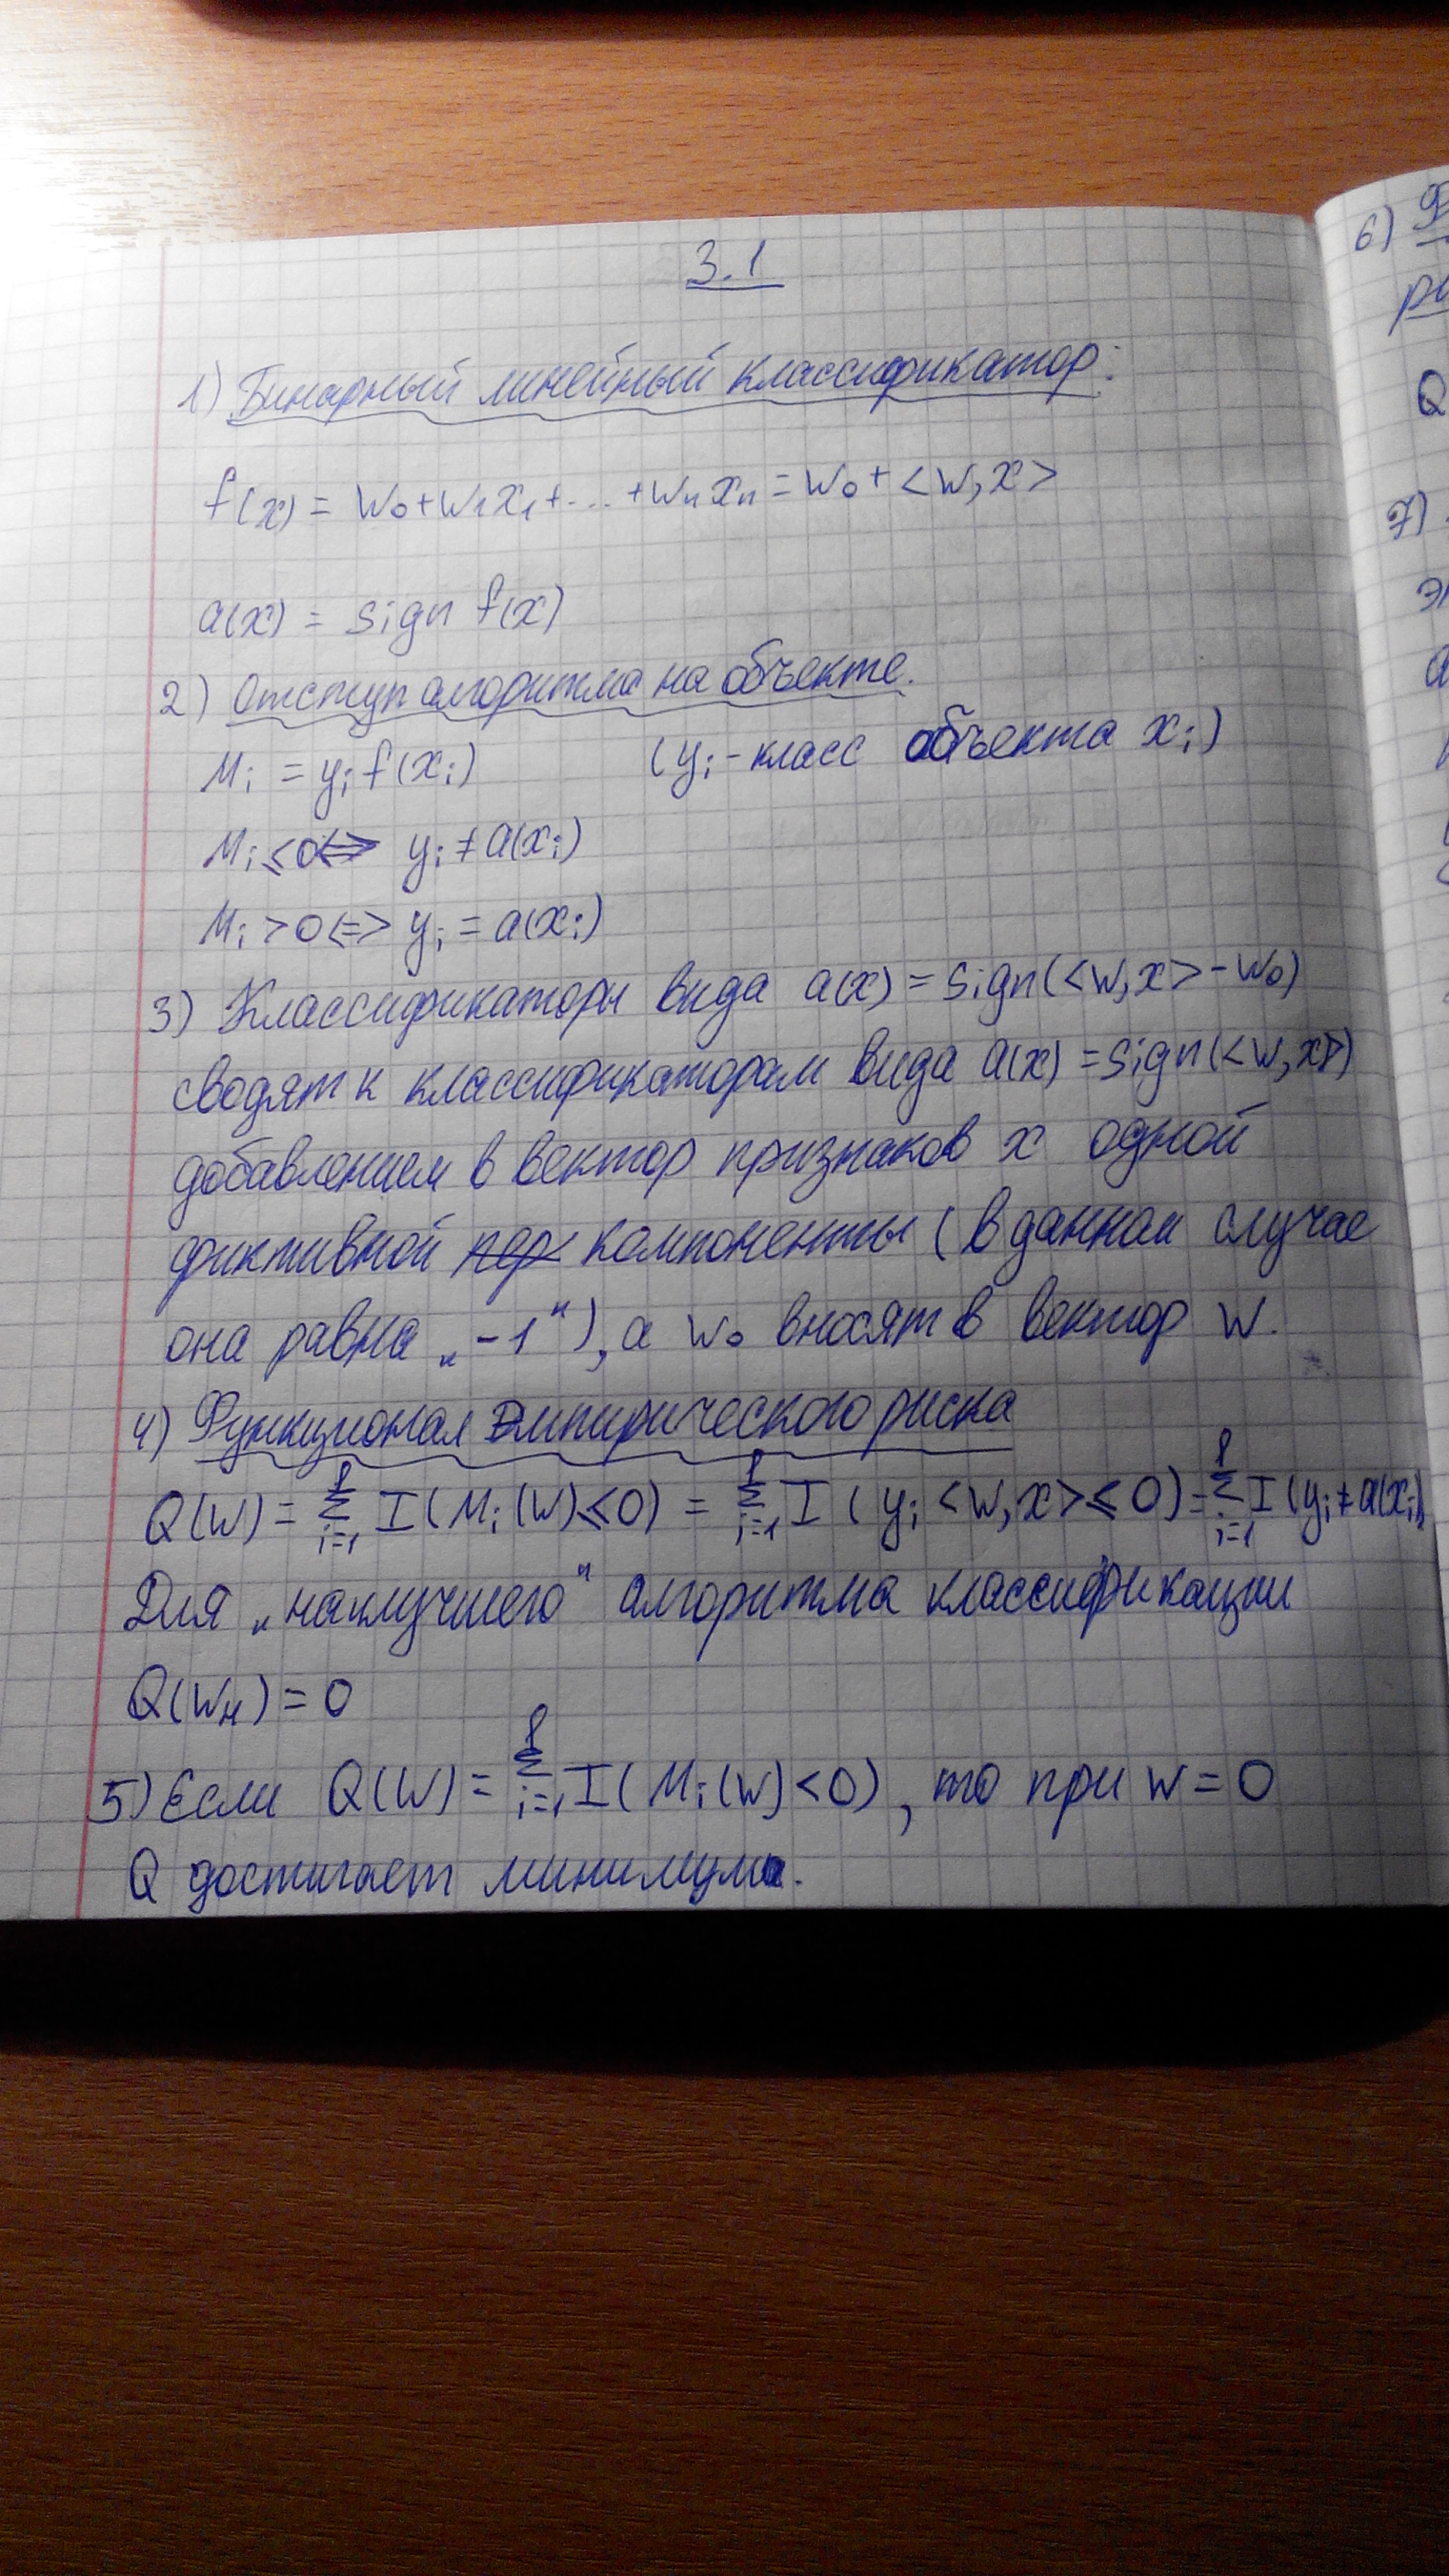 3.1
1) Бинарный линейный классификатор:
f(x) = w₀+w₁x₁+...+wₙxₙ = w₀+<w,x>
a(x) = sign f(x)
2) Отступ алгоритма на объекте.
Mᵢ = yᵢ f(xᵢ) (yᵢ - класс объекта xᵢ)
Mᵢ ≤ 0 <=> yᵢ ≠ a(xᵢ)
Mᵢ > 0 <=> yᵢ = a(xᵢ)
3) Классификаторы вида a(x) = sign(<w,x> - w₀)
сводят к классификаторам вида a(x) = sign(<w,x>)
добавлением в вектор признаков x одной
фиктивной компоненты (в данном случае
она равна „-1"), а w₀ вносят в вектор w.
4) Функционал Эмпирического риска
Q(w) = Σᵢ₌₁ˡ I(Mᵢ(w) ≤ 0) = Σᵢ₌₁ˡ I(yᵢ <w,x> ≤ 0) = Σᵢ₌₁ˡ I(yᵢ ≠ a(xᵢ)
Для „наилучшего" алгоритма классификации
Q(wₙ) = 0
5) Если Q(w) = Σᵢ₌₁ˡ I(Mᵢ(w) < 0), то при w = 0
Q достигает минимума.
6) Ф
Q
7)